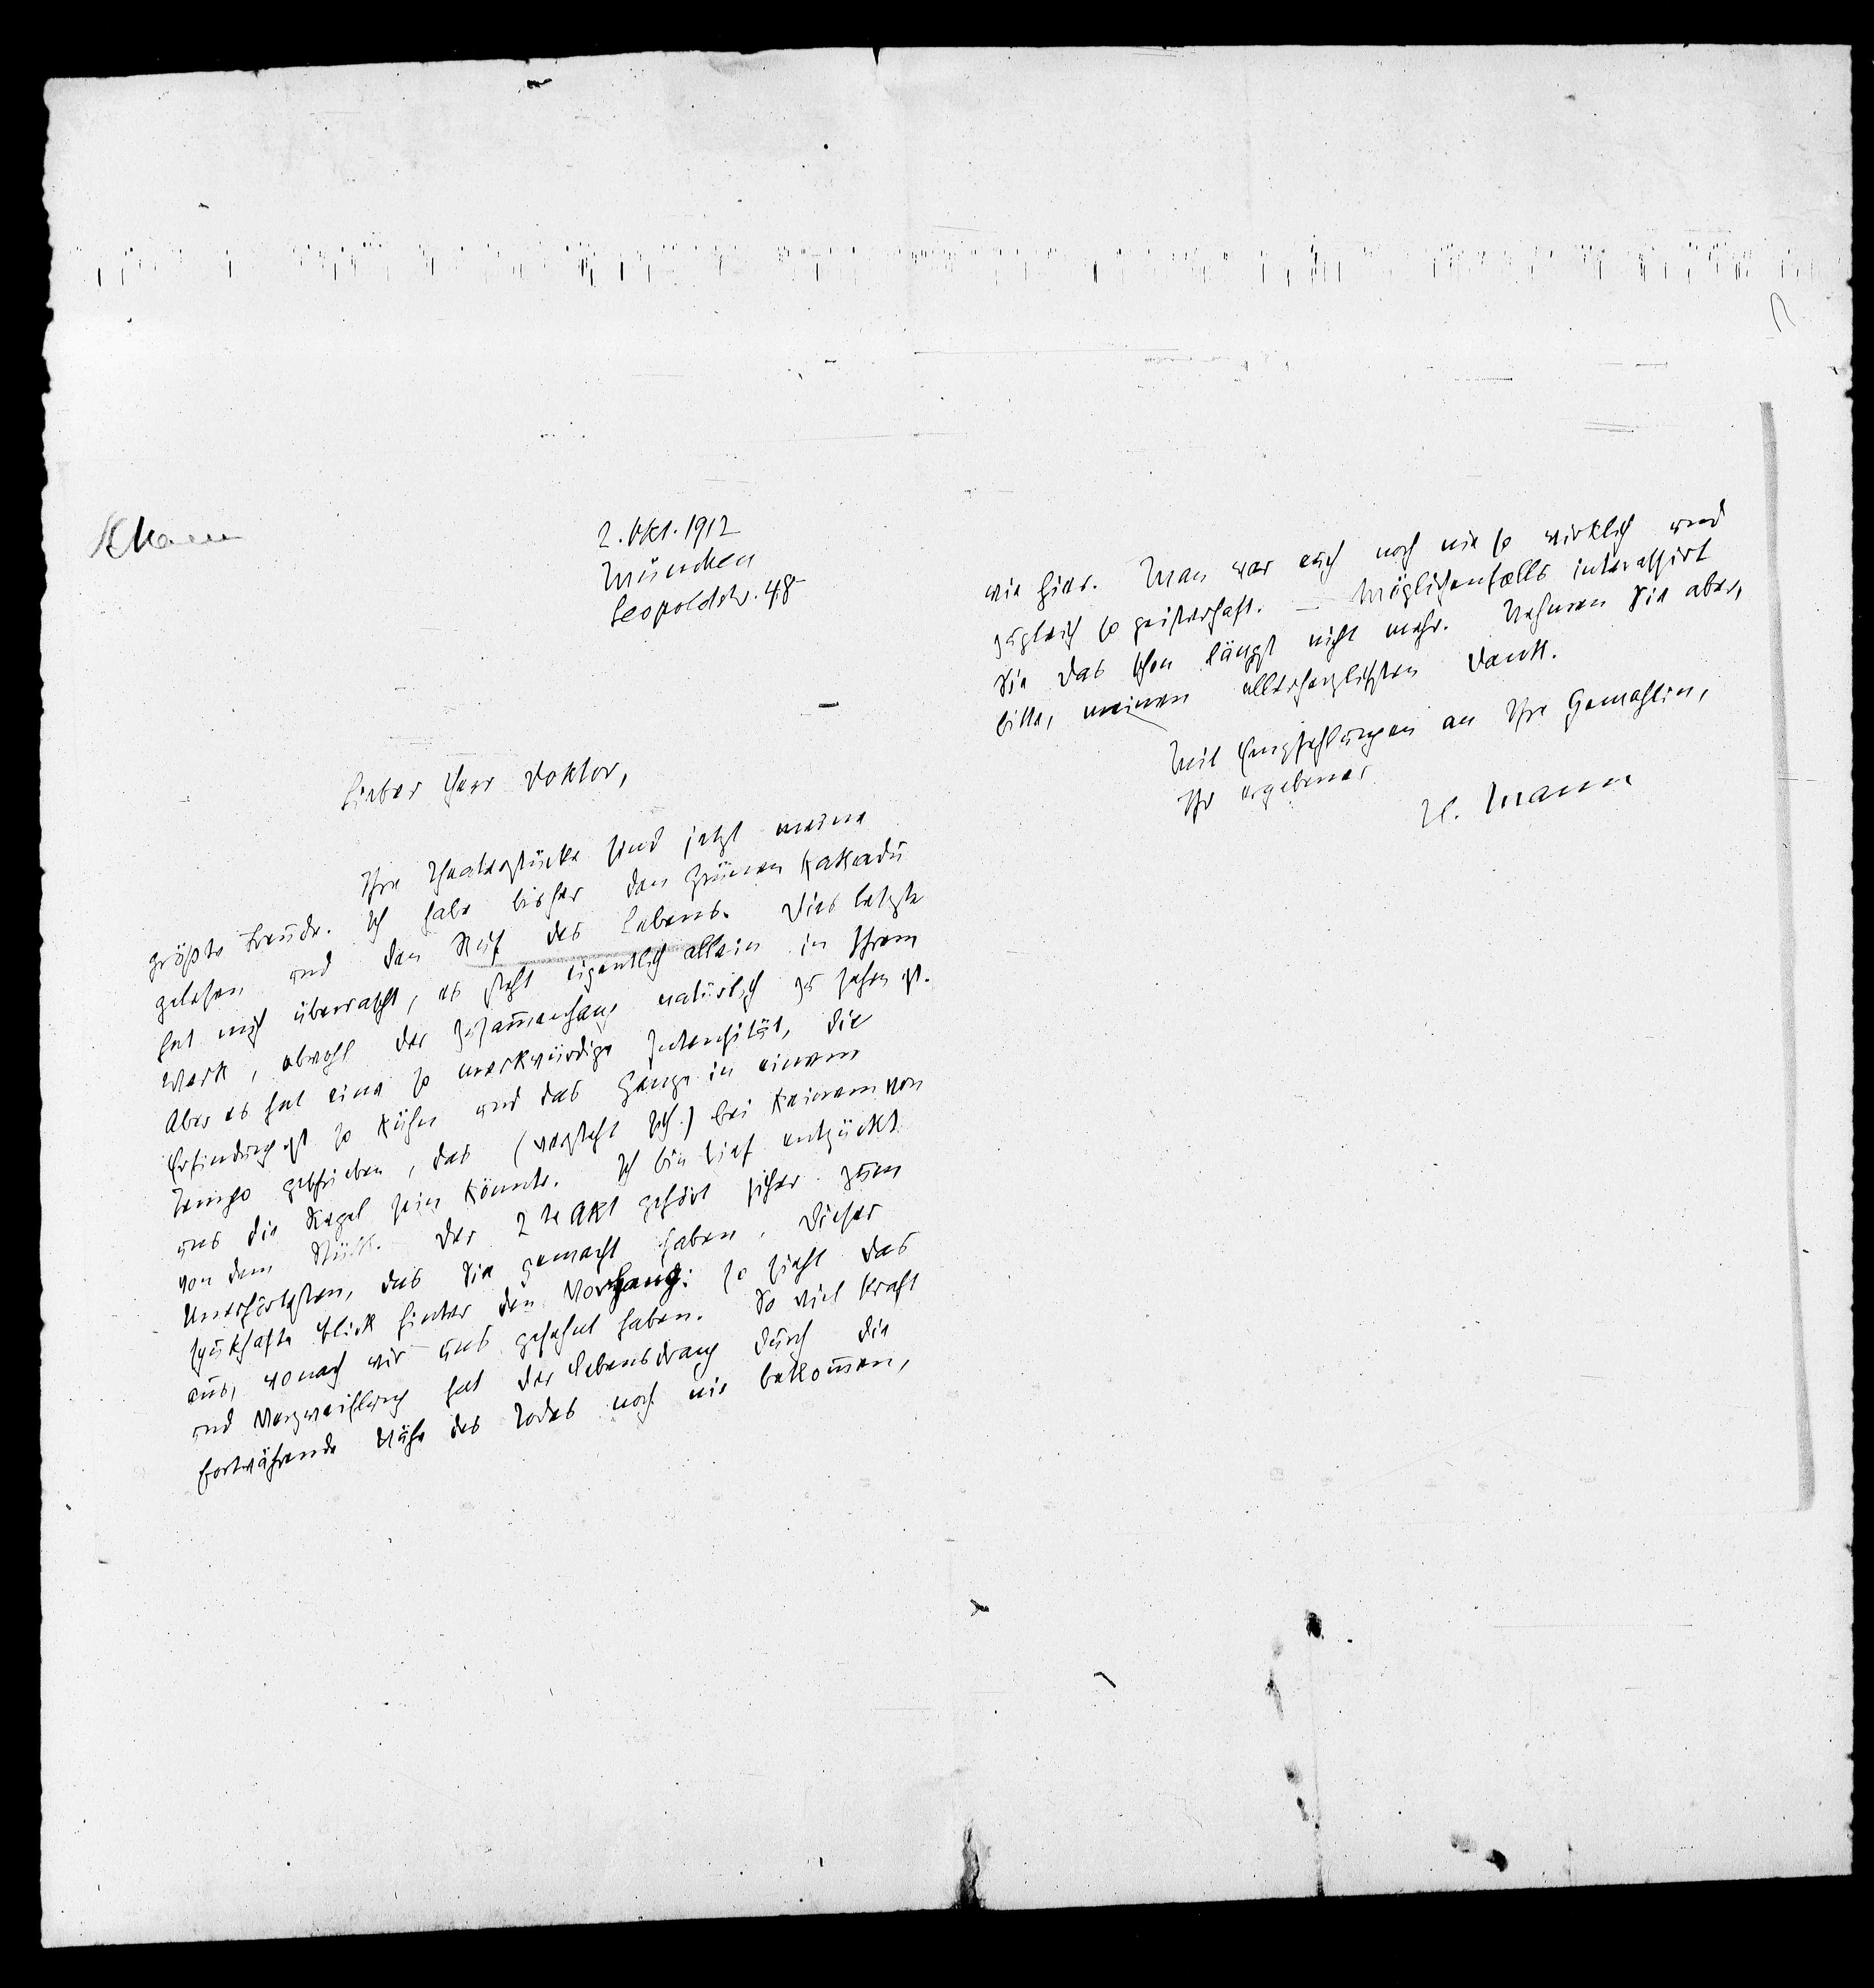 HMann
2. Okt. 1912
München
Leopoldstr. 48
Lieber Herr Doktor,
Ihre Theaterstücke sind jetzt meine
größte Freude. Ich habe bisher den Grünen Kakadu
gelesen und den Ruf des Lebens. Dies letzte
hat mich überrascht, es steht eigentlich allein in Ihrem
Werk, obwohl der Zusam̄enhang natürlich zu sehen ist.
Aber es hat eine so merkwürdige Intensität, die
Erfindung ist so kühn und das Ganze in einem
Tempo geschrieben, das (versteht sich.) bei keinem von
uns die Regel sein könnte. Ich bin tief entzückt
von dem Stück. Der 2te Akt gehört sicher zum
Unerhörtesten, das Sie gemacht haben. Dieser
spukhafte Blick hinter den Vorhang: so sieht das
aus, wonach wir uns gesehnt haben. So viel Kraft
und Verzweiflung hat der Lebensdrang durch die
fortwährende Nähe des Todes noch nie bekom̄en,
wie hier. Man war auch noch nie so wirklich und
zugleich so geisterhaft. – Möglichenfalls interessirt
Sie das schon längst nicht mehr. Nehmen Sie aber,
bitte, meinen allerherzlichsten Dank.
Mit Empfehlungen an Ihre Gemahlin,
Ihr ergebener
H. Mann